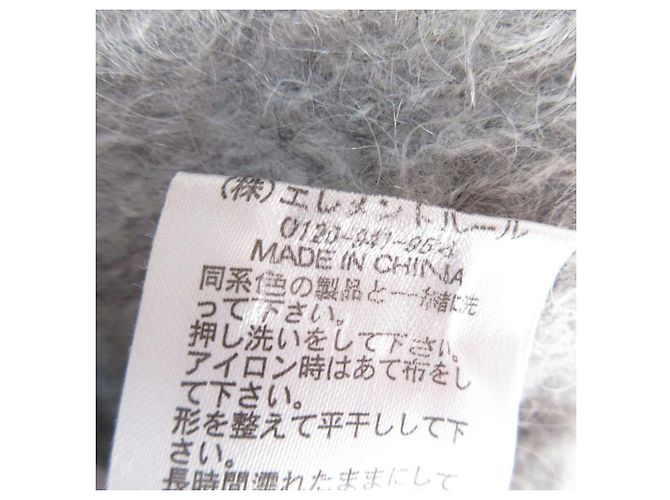 (株)エレメントルール
0120-941-954
MADE IN CHINA
同系色の製品と一緒に洗
って下さい。
押し洗いをして下さい。
アイロン時はあて布をし
て下さい。
形を整えて平干しして下
さい。
長時間濡れたままにして